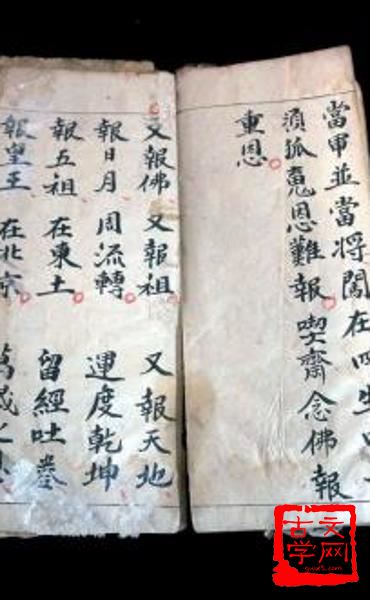 當甲並當將闖在四生
須孤鬼恩難報 喫齋念佛報
重恩
又報佛 又報祖 又報天地
報日月 周流轉 運度乾坤
報五祖 在東土 留經吐卷
報皇王 在北京 萬歲之
古文学网